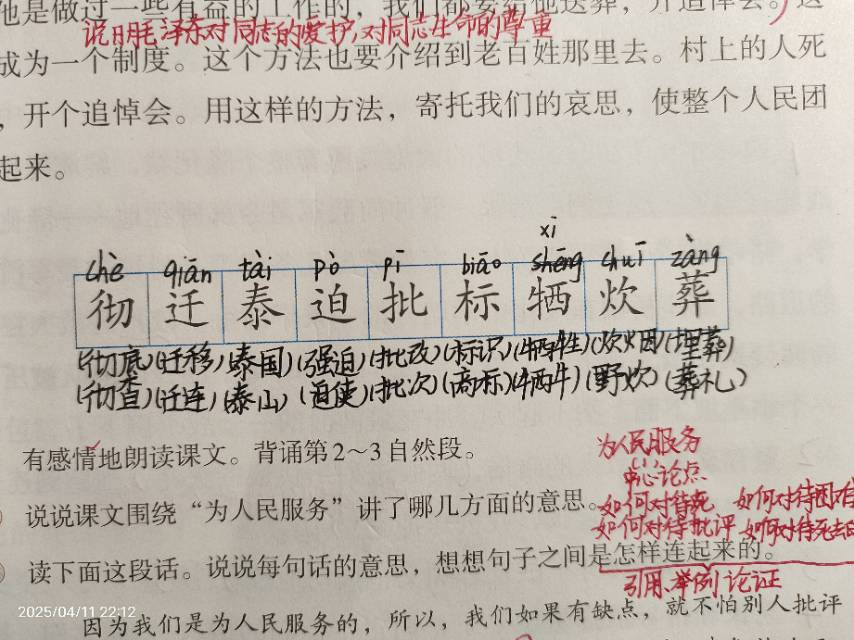 他是做过一些有益的工作的，我们都要给他送葬，开追悼会。这
说明毛泽东对同志的爱护,对同志生命的尊重
成为一个制度。这个方法也要介绍到老百姓那里去。村上的人死
，开个追悼会。用这样的方法，寄托我们的哀思，使整个人民团
起来。
xī
chè qiān tài pò pī biāo shēng chuī zàng
彻 迁 泰 迫 批 标 牺 炊 葬
(彻底)(迁移)(泰国)(强迫)(批改)(标识)(牺牲)(炊烟)(埋葬)
(彻查)(迁连)(泰山)(迫使)(批次)(高标)(牺牛)(野炊)(葬礼)
有感情地朗读课文。背诵第2～3自然段。
为人民服务
中心论点
说说课文围绕“为人民服务”讲了哪几方面的意思。
如何对待死 如何对待困难
如何对待批评 如何对待死去的
读下面这段话。说说每句话的意思，想想句子之间是怎样连起来的。
引用、举例论证
因为我们是为人民服务的，所以，我们如果有缺点，就不怕别人批评
2025/04/11 22:12